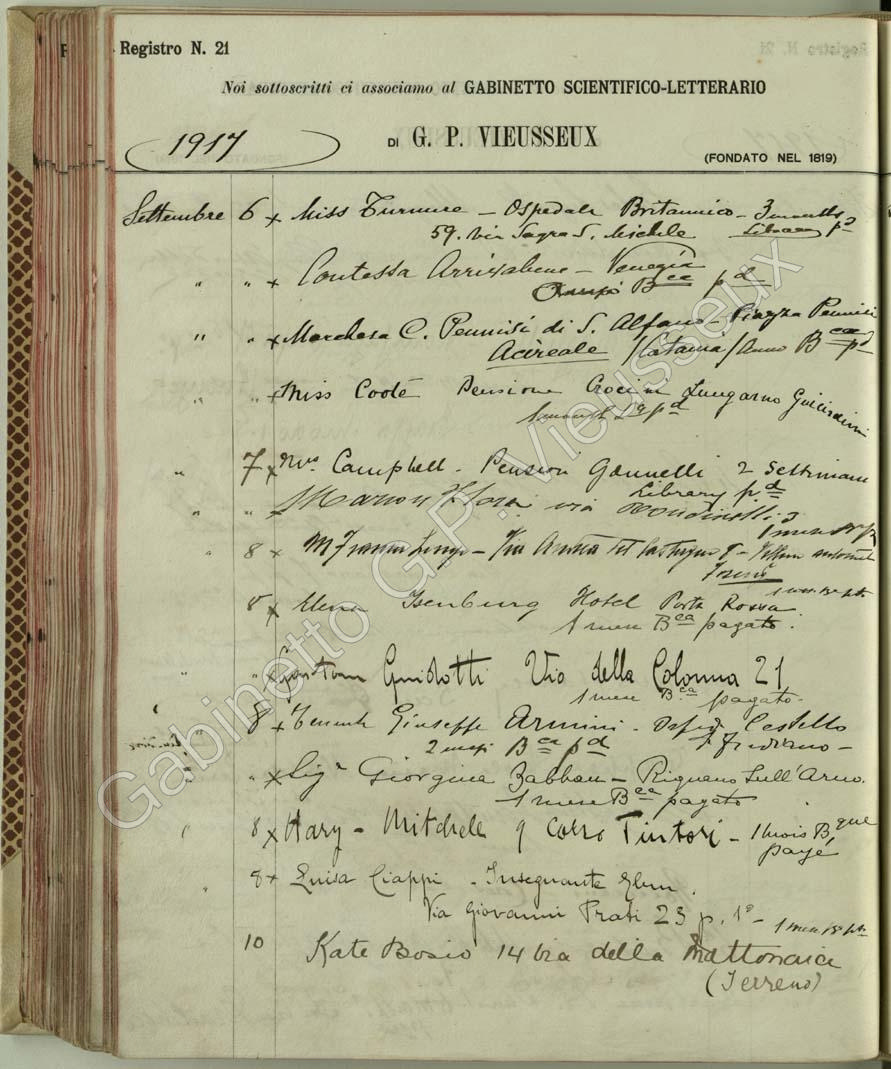 Registro N. 21
Noi sottoscritti ci associamo al GABINETTO SCIENTIFICO-LETTERARIO
1917 DI G. P. VIEUSSEUX
(FONDATO NEL 1819)
Settembre 6 x Miss Turnure - Ospedale Britannico - 3 months
59. via Sagra S. Michele Library pd
" " x Contessa Arrivabene - Venezia
Bca pd
" " x Marchesa C. Pennisi di S. Alfano. Piazza Pennisi
Acireale /Catania/ Anno Bca pd
" " x Miss Coote Pensione Crocini Lungarno Guicciardini
1 month pd
" 7 x Mrs Campbell. Pension Giannelli 2 Settimane
Library pd
" " x via Rondinelli 7
1 mese
" 8 x Via
8 x Elena Isenburg Hotel Porta Rossa
1 mese Bca pagato.
" " x Gastone Guidotti Via della Colonna 21
1 mese Bca pagato-
" 8 x Tenente Giuseppe Armini. Osped. Castello
2 mesi Bca pd S. Frediano -
" x Sig.a Giorgina Zabban - Rignano Sull'Arno.
1 mese Bca pagato
" 8 x Mary - Mitchele 9 Corso Tintori - 1 mois Bque
payé
" 8 x Luisa Ciappi - Insegnante Elem.
Via Giovanni Prati 23 p. 1° -
1 mese
10 Kate Bosio 14 via della Mattonaia
(Terreno)
Gabinetto G.P. Vieusseux